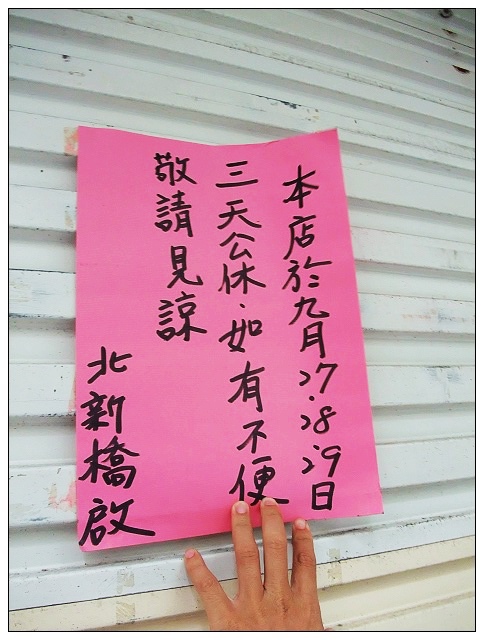 本店於九月27.28.29日
三天公休.如有不便
敬請見諒
北新橋啟